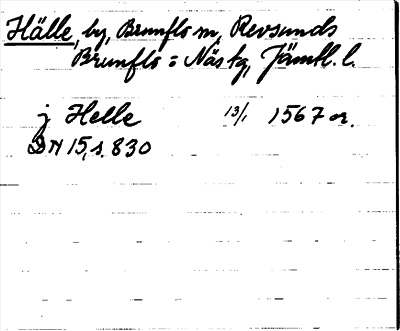 Hälle, by, Brunflo sn, Revsunds
Brunflo o Näs tg, Jämtl. l.
j Helle 13/1 1567 or.
DN 15, s. 830